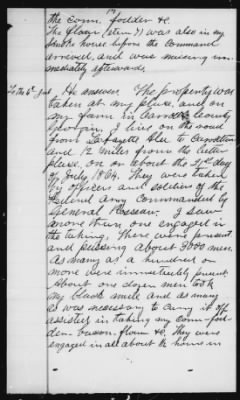 the corn, fodder &c.
The flour (item 7) was also in my
smoke house before the command
arrived, and was missing im-
mediately afterwards.
To the 6th Int. He answers. The property was
taken at my place, and on
my farm in Carroll County
Georgia. I live on the road
from LaFayette Ala. to Carrollton
and 12 miles from the latter
place, on or about the 2 day
of July 1864. They were taken
by officers and soldiers of the
Federal Army commanded by
General Rosseau. I saw
more than one engaged in
the taking. There were present
and passing about 3000 men.
As many as a hundred or
more were immediately present.
About one dozen men took
my black mule and as many
as was necessary to carry it off
assisted in taking my corn - fod-
der - bacon - flour &c. They were
engaged in all about ½ hours in